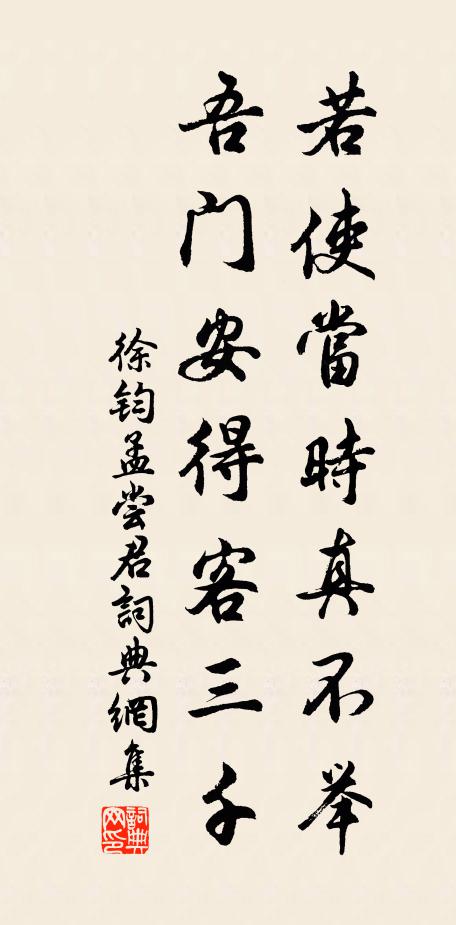 若使當時真不举
吾门安得客三千
徐钧孟尝君詞典網集
詞典网印